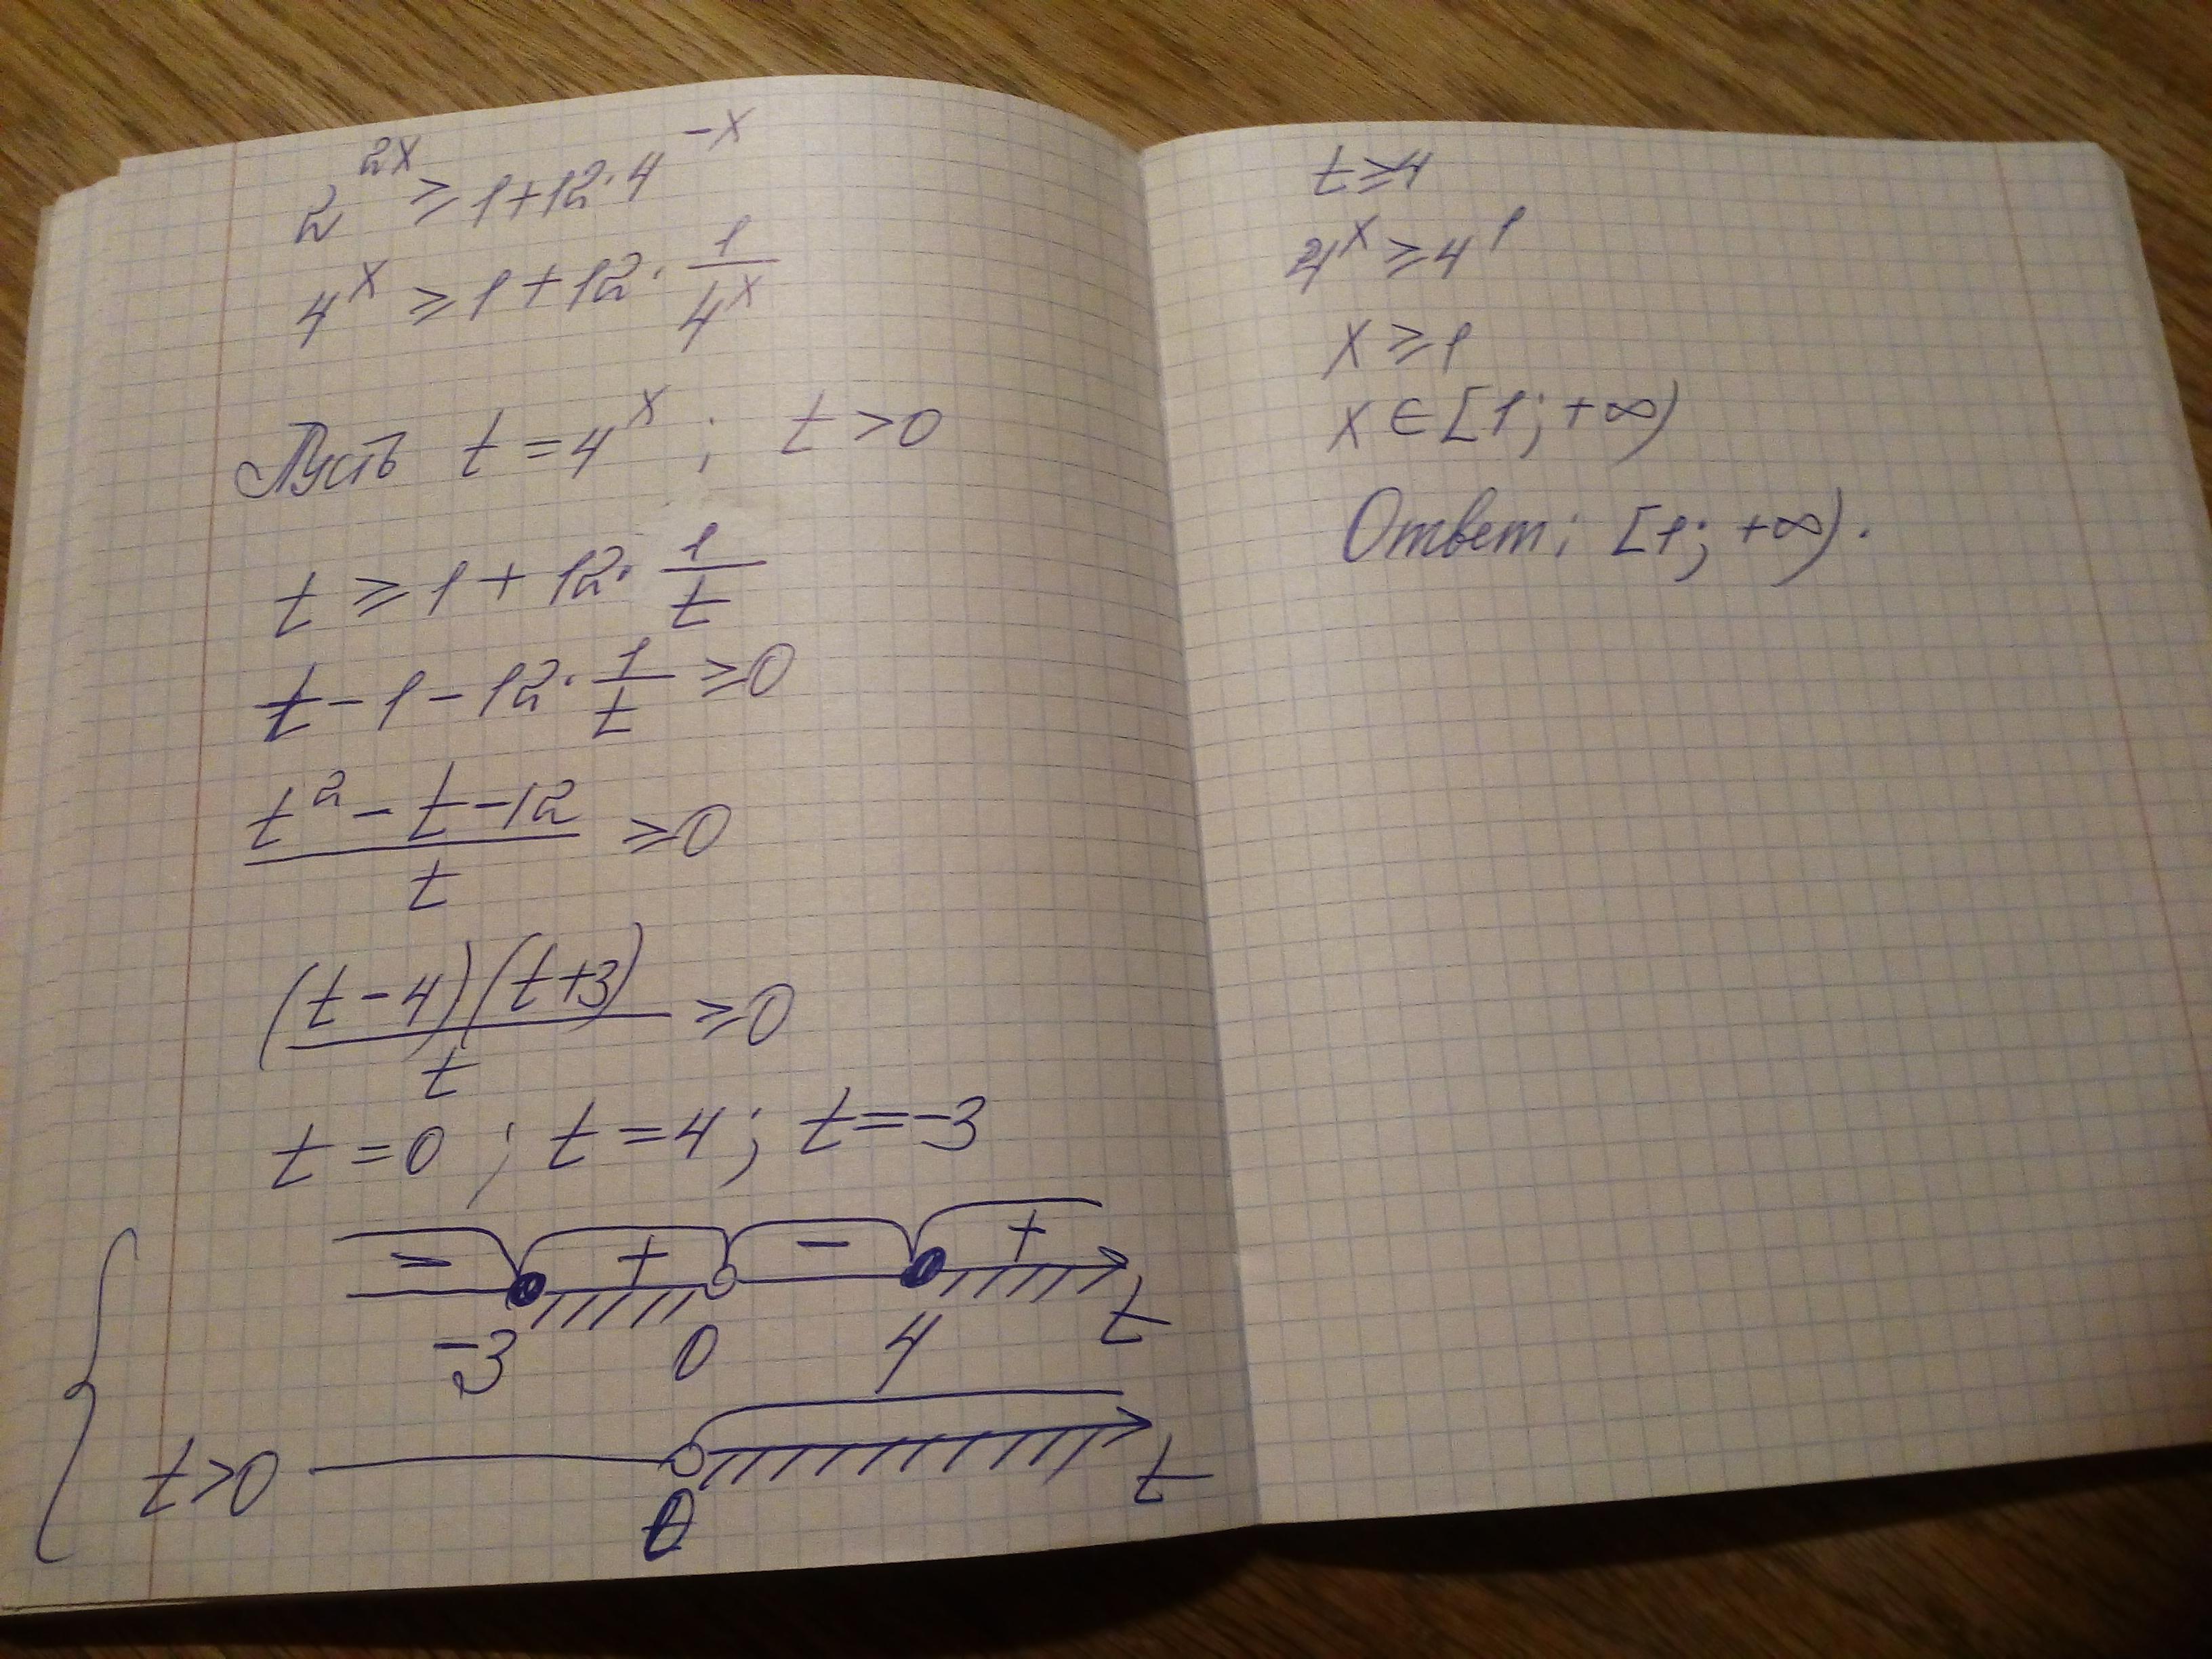 2^{2x} ≥ 1 + 12 · 4^{-x}
4^x ≥ 1 + 12 · \frac{1}{4^x}
Пусть t = 4^x ; t > 0
t ≥ 1 + 12 · \frac{1}{t}
t - 1 - 12 · \frac{1}{t} ≥ 0
\frac{t^2 - t - 12}{t} ≥ 0
\frac{(t - 4)(t + 3)}{t} ≥ 0
t = 0 ; t = 4 ; t = -3
- + - +
-3 0 4 t
t > 0 0 t
t ≥ 4
4^x ≥ 4^1
x ≥ 1
x ∈ [1; +∞)
Ответ: [1; +∞).